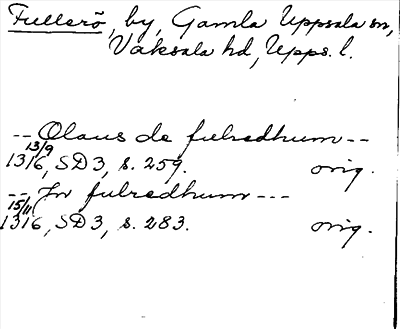 Fullerö, by, Gamla Uppsala sn,
Vaksala hd, Upps. l.
-- Olaus de fulredhum --
13/9
1316, SD 3, s. 259. orig.
-- In fulredhum ---
15/11
1316, SD 3, s. 283. orig.